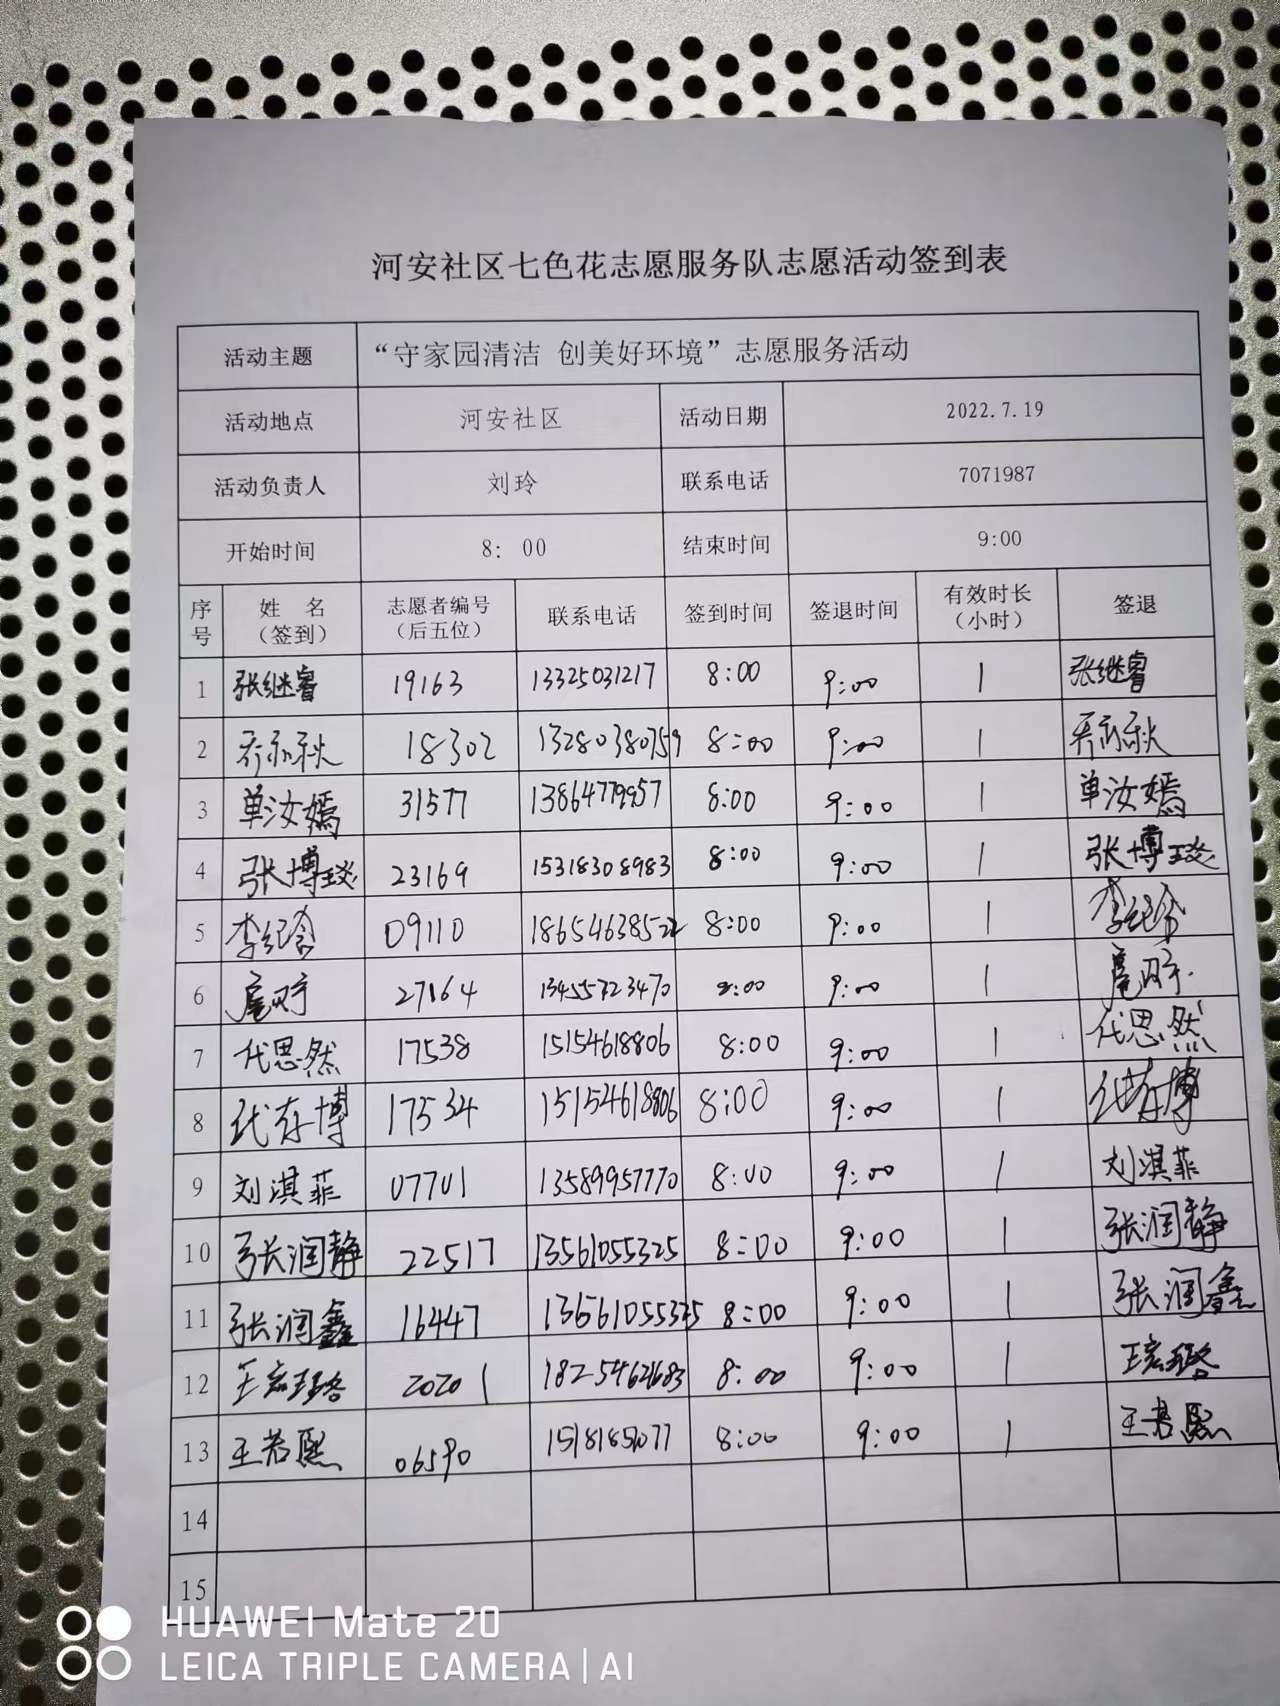 河安社区七色花志愿服务队志愿活动签到表
活动主题 “守家园清洁 创美好环境”志愿服务活动
活动地点 河安社区 活动日期 2022.7.19
活动负责人 刘玲 联系电话 7071987
开始时间 8: 00 结束时间 9:00
序号 姓 名（签到） 志愿者编号（后五位） 联系电话 签到时间 签退时间 有效时长（小时） 签退
1 张继睿 19163 13325031217 8:00 9:00 1 张继睿
2 18302 13280380759 8:00 9:00 1
3 单汝嫣 31577 13864779957 8:00 9:00 1 单汝嫣
4 张博琰 23169 15318308983 8:00 9:00 1 张博琰
5 09110 8:00 9:00 1
6 27164 13455723470 8:00 9:00 1
7 代思然 17538 15154618806 8:00 9:00 1 代思然
8 代存博 17534 15154618806 8:00 9:00 1 代存博
9 刘淇菲 07701 13589957770 8:00 9:00 1 刘淇菲
10 张润静 22517 13561055325 8:00 9:00 1 张润静
11 张润鑫 16447 13561055325 8:00 9:00 1 张润鑫
12 20201 18254621683 8:00 9:00 1
13 王若熙 06590 8:00 9:00 1 王若熙
14
15
HUAWEI Mate 20
LEICA TRIPLE CAMERA | AI